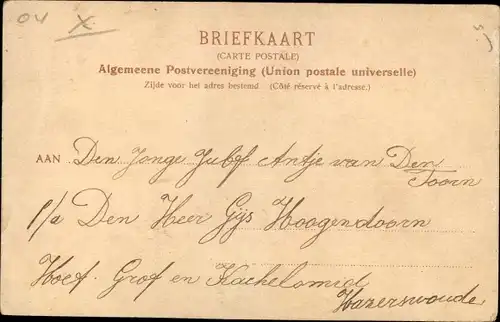 04 X
BRIEFKAART
(CARTE POSTALE)
Algemeene Postvereeniging (Union postale universelle)
Zijde voor het adres bestemd (Côté réservé à l'adresse.)
AAN Den Jonge Jubf Antje van Den
Toorn
p/a Den Heer Gijs Hoogendoorn
Hoef Grof en Kachelsmid
Hazerswoude